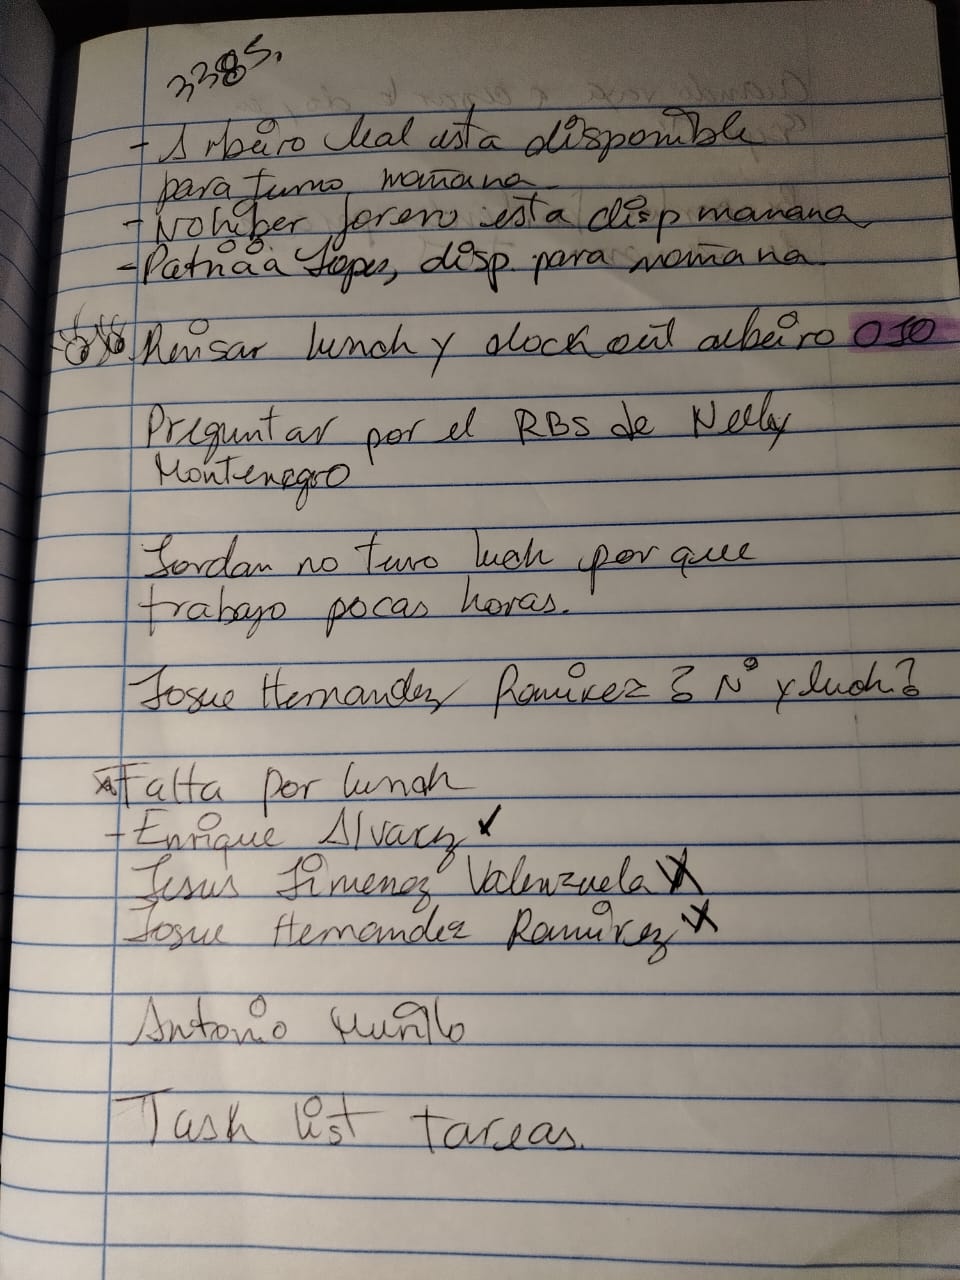 3385.
- Arbeiro leal esta disponible
para turno mañana
- Nohiber forero esta disp manana
- Patricia Lopes, disp. para mañana.
Revisar lunch y clock out albeiro OJO
Preguntar por el RBS de Nelly
Montenegro
Jordan no tuvo luch por que
trabajo pocas horas.
Josue Hernandez Ramirez ? N° y luch?
Falta por lunch
- Enrique Alvarez ✓
Jesus Jimenez Valenzuela X
Josue Hernandez Ramirez X
Antonio Murillo
Task list tareas.